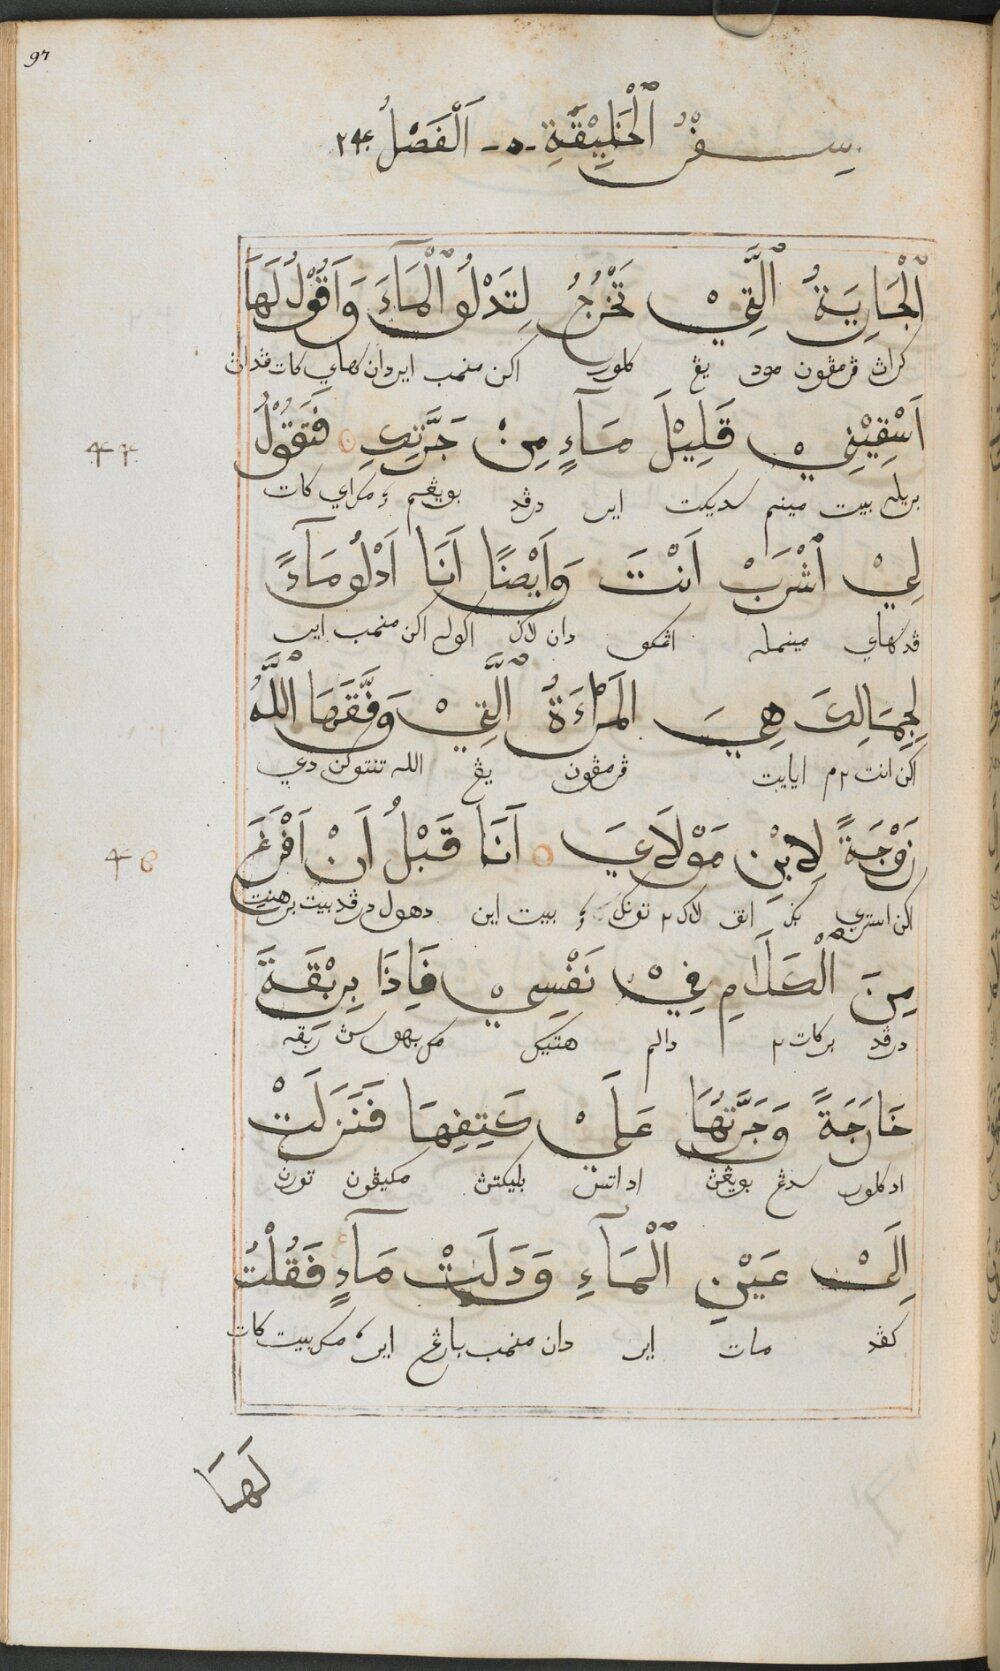 ٩٢
سِفْرُ ٱلْخَلِيْقَةِ -٥- اَلْفَصْلُ ٢٤
ٱلْجَارِيَةُ ٱلَّتِيْ تَخْرُجُ لِتَدْلُوَ ٱلْمَآءَ وَاَقُوْلُ لَهَا
ڤرمڤون مود يڠ كلور اكن منمب اير دان كهاي كات ڤداڽ
اَسْقِيْنِيْ قَلِيْلَ مَآءٍ مِنْ جَرَّتِكِ فَتَقُوْلُ
٤٤
بريله بيت مينم سديكت اير درڤد بويڠم كات
لِيْ ٱشْرَبْ اَنْتَ وَاَيْضًا اَنَا اَدْلُو مَآءً
ڤد كهاي مينمله اڠكو دان لاݢي اكوله اكن منمب اير
لِجِمَالِكَ هِيَ الْمَرْاَةُ ٱلَّتِيْ وَفَّقَهَا ٱللّٰهُ
اكن انت٢م اياايت ڤرمڤون يڠ الله تنتوكن دي
زَوْجَةً لِابْنِ مَوْلَايَ اَنَا قَبْلُ اَنْ اَفْرَغَ
٤٥
اكن استري بݢي انق لاك٢ تونكو بيت اين دهول درڤد بيت برهنتي
مِنَ ٱلْكَلَامِ فِيْ نَفْسِيْ فَاِذَا بِرِبْقَةَ
درڤد بركات٢ دالم هتيكو ربقه
خَارِجَةً وَجَرَّتُهَا عَلَيْ كَتِفِهَا فَنَزَلَتْ
اد كلور سدڠ بويڠڽ اد اتس بليكتڽ مكيڤون تورن
اِلَيْ عَيْنِ ٱلْمَآءِ وَدَلَتْ مَآءٍ فَقُلْتُ
كڤد مات اير دان منمب بارڠ اير مك بيت كات
لَهَا